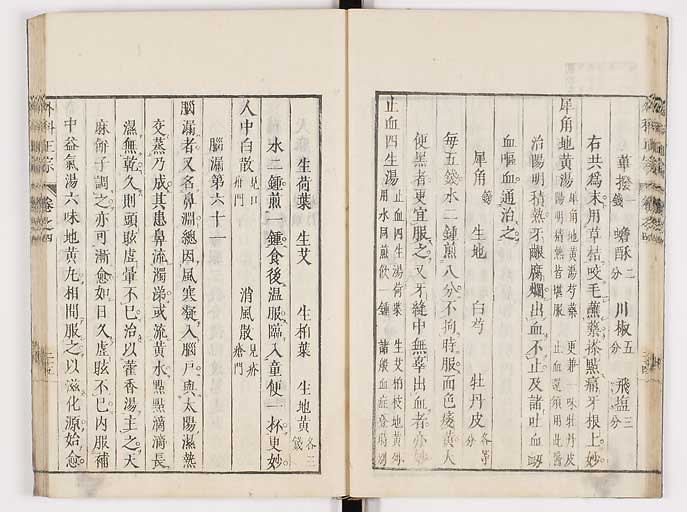 蓽撥一錢 蟾酥二分 川椒五分 飛鹽三分
右共爲末用草桔咬毛蘸藥搽點痛牙根上妙
犀角地黃湯 犀角地黃湯芍藥 更兼一味牡丹皮 陽明積熱皆堪服 止血還須用此醫
治陽明積熱牙齦腐爛出血不止及諸吐血衂
血嘔血通治之
犀角鎊 生地 白芍 牡丹皮各等分
每五錢水二鍾煎八分不拘時服面色痿黃大
便黑者更宜服之又牙縫中無辜出血者亦妙
止血四生湯 止血四生湯荷葉 生艾柏枝地黃列 用水同煎飲一鍾 諸般血症
生荷葉 生艾 生柏葉 生地黃各三錢
水二鍾煎一鍾食後温服臨入童便一杯更妙
人中白散見口疳門 消風散見疥瘡門
腦漏第六十一
腦漏者又名鼻淵總因風寒凝入腦戶與太陽濕熱
交蒸乃成其患鼻流濁涕或流黃水點點滴滴長
濕無乾久則頭眩虛暈不已治以藿香湯主之天
麻餅子調之亦可漸愈如日久虛眩不已內服補
中益氣湯六味地黃丸相間服之以滋化源始愈
外科正宗 卷之四